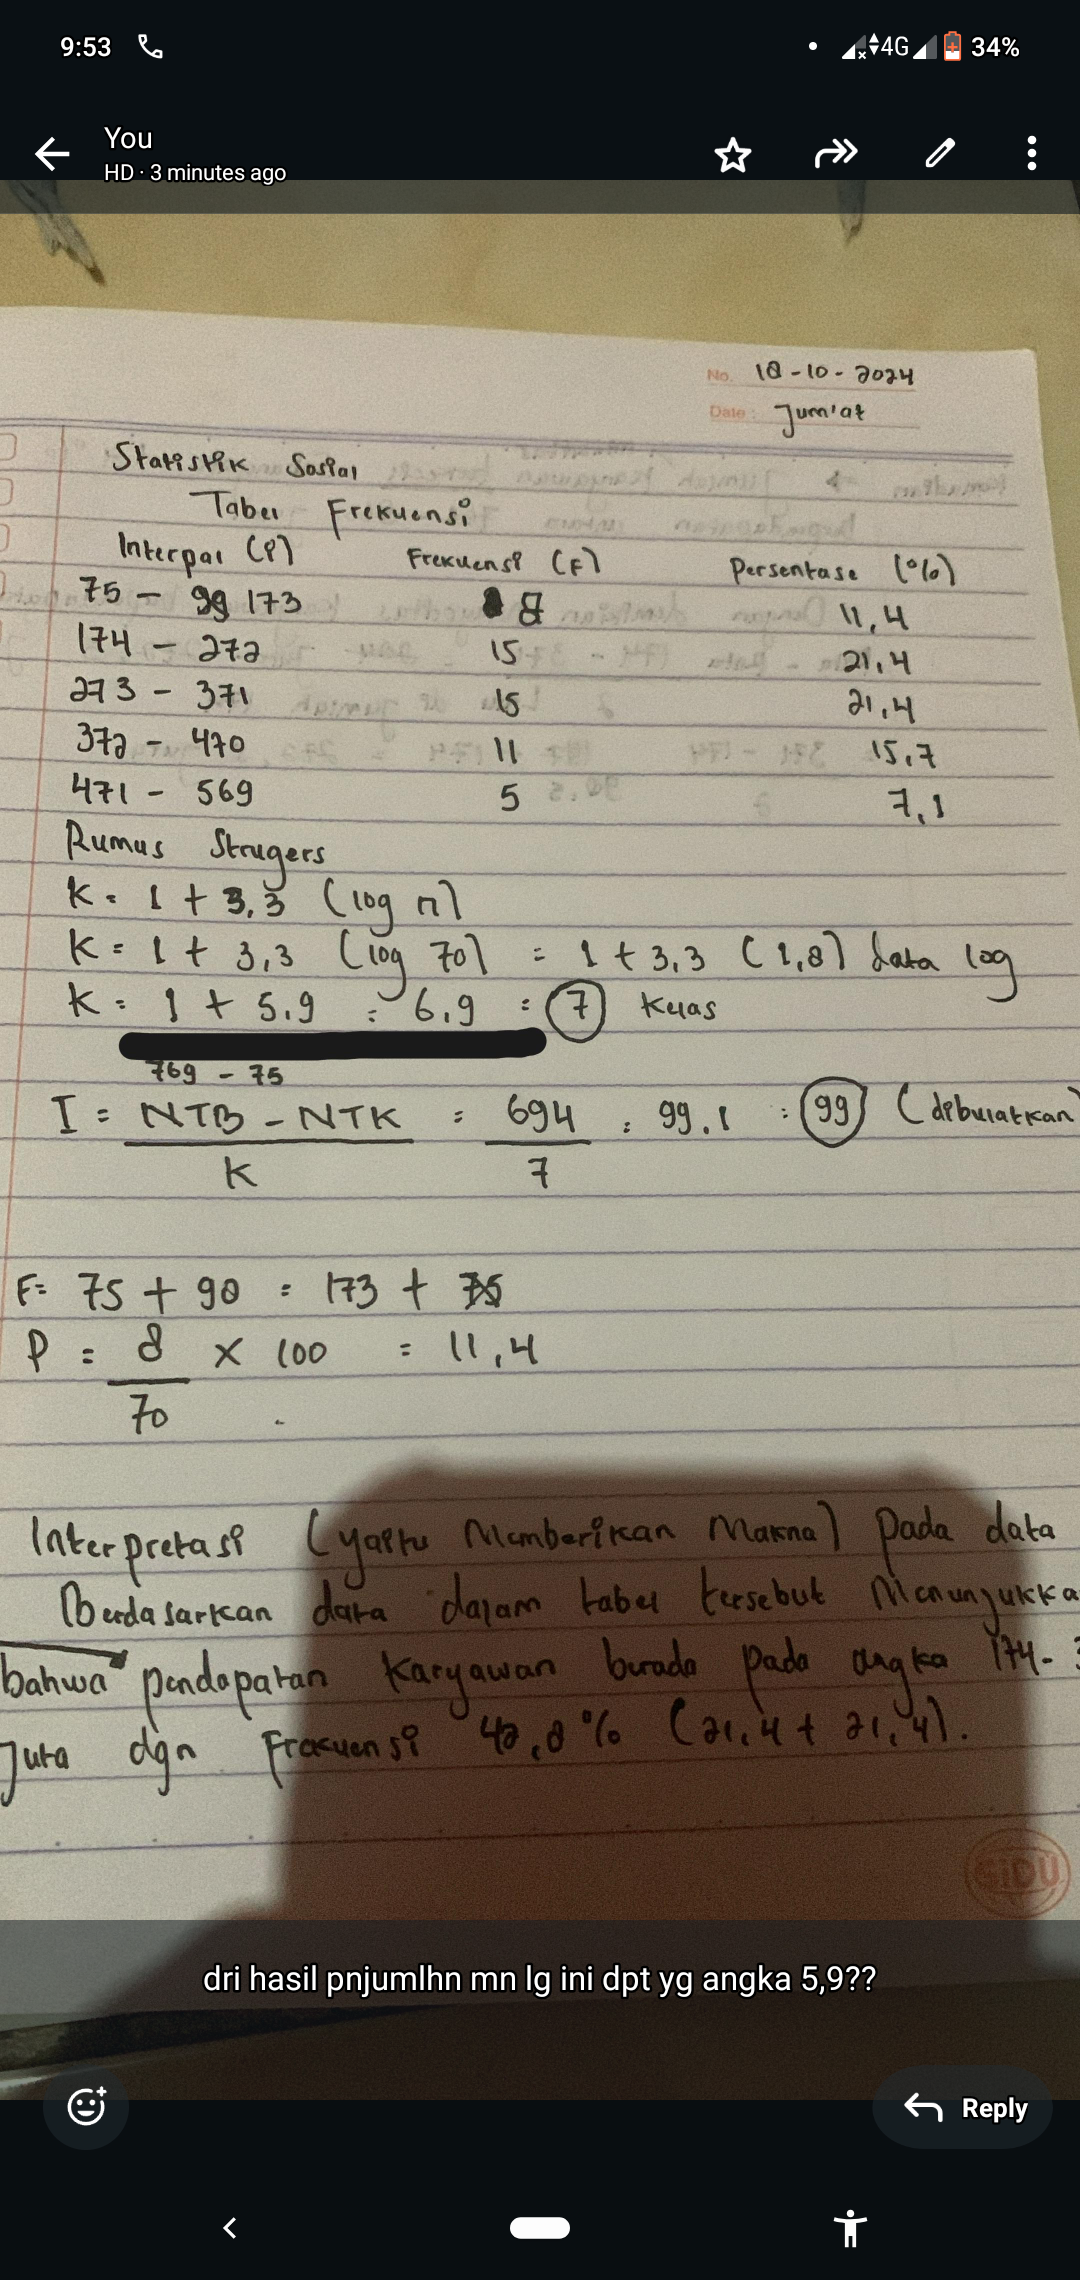 9:53 4G 34%
You
HD · 3 minutes ago
No. 18-10-2024
Date: Jum'at
Statistik Sosial
Tabel Frekuensi
Interpal (P) Frekuensi (F) Persentase (%)
75 - 173 8 11,4
174 - 272 15 21,4
273 - 371 15 21,4
372 - 470 11 15,7
471 - 569 5 7,1
Rumus Strugers
K = 1 + 3,3 (log n)
K = 1 + 3,3 (log 70) = 1 + 3,3 (1,8) data log
K = 1 + 5.9 = 6,9 = 7 Kelas
769 - 75
I = NTB - NTK = 694 = 99,1 = 99 (dibulatkan)
K 7
F= 75 + 98 = 173 +
P = 8 x 100 = 11,4
70
Interpretasi (yaitu Memberikan Makna) pada data
(berdasarkan data dalam tabel tersebut Menunjukka
bahwa pendapatan Karyawan berada pada angka 174-3
Juta dgn Frekuensi 42,8% (21,4 + 21,4).
SIDU
dri hasil pnjumlhn mn lg ini dpt yg angka 5,9??
Reply